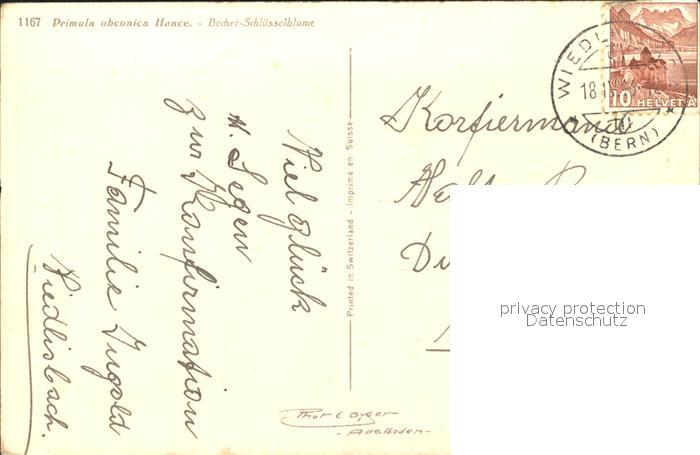 1167 Primula obconica Hance. - Becher-Schlüsselblume
Viel Glück
u. Segen
zur Konfirmation
Familie Ingold
Wiedlisbach.
Printed in Switzerland - Imprimé en Suisse
WIEDL
18.
(BERN)
10 HELVETIA
privacy protection
Datenschutz
- Adelboden -